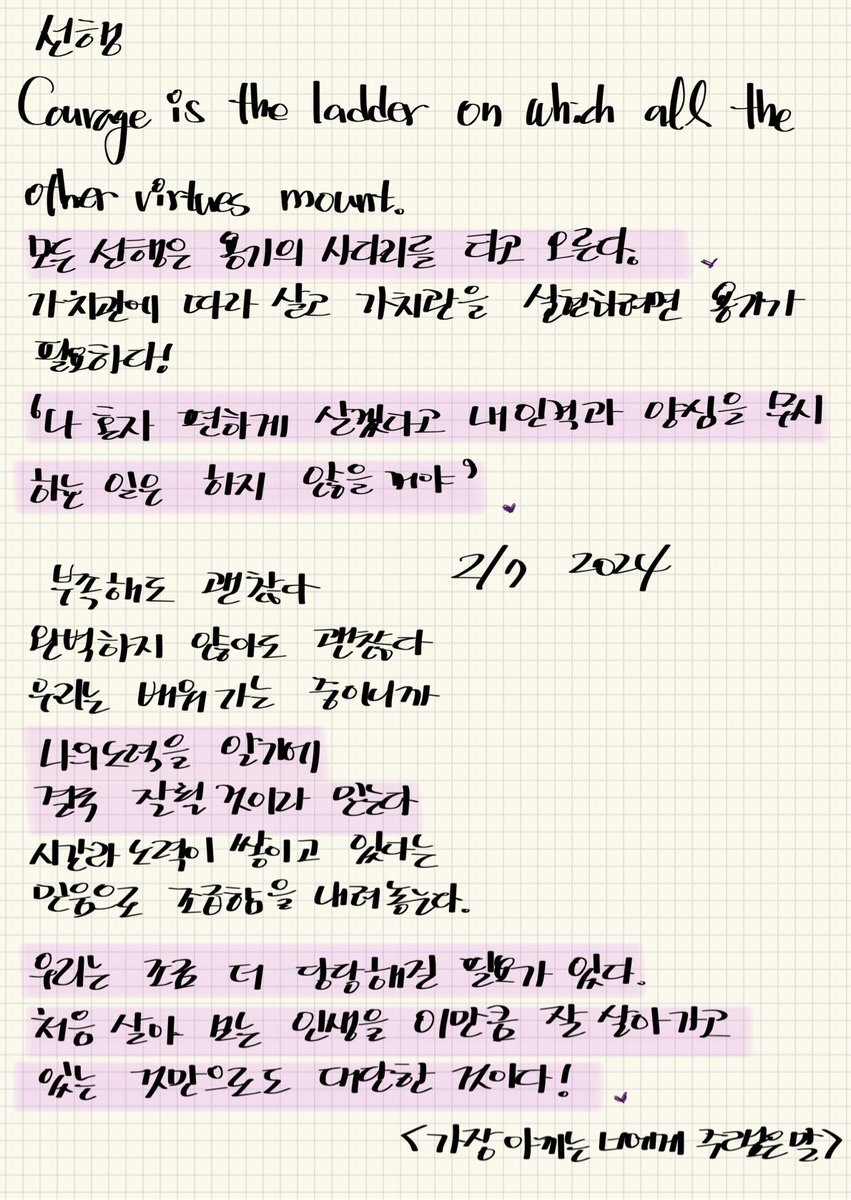 선행
Courage is the ladder on which all the
other virtues mount.
모든 선행은 용기의 사다리를 타고 오른다.
가치관에 따라 살고 가치관을 실현하려면 용기가
필요하다!
'나 혼자 편하게 살겠다고 내 인격과 양심을 무시
하는 일은 하지 않을 거야'
2/7 2024
부족해도 괜찮다
완벽하지 않아도 괜찮다
우리는 배워 가는 중이니까
나의 노력을 알기에
결국 잘될 것이라 믿는다
시간과 노력이 쌓이고 있다는
믿음으로 조급함을 내려놓는다.
우리는 조금 더 당당해질 필요가 있다.
처음 살아 보는 인생을 이만큼 잘 살아가고
있는 것만으로도 대단한 것이다!
<가장 아끼는 너에게 주고싶은 말>